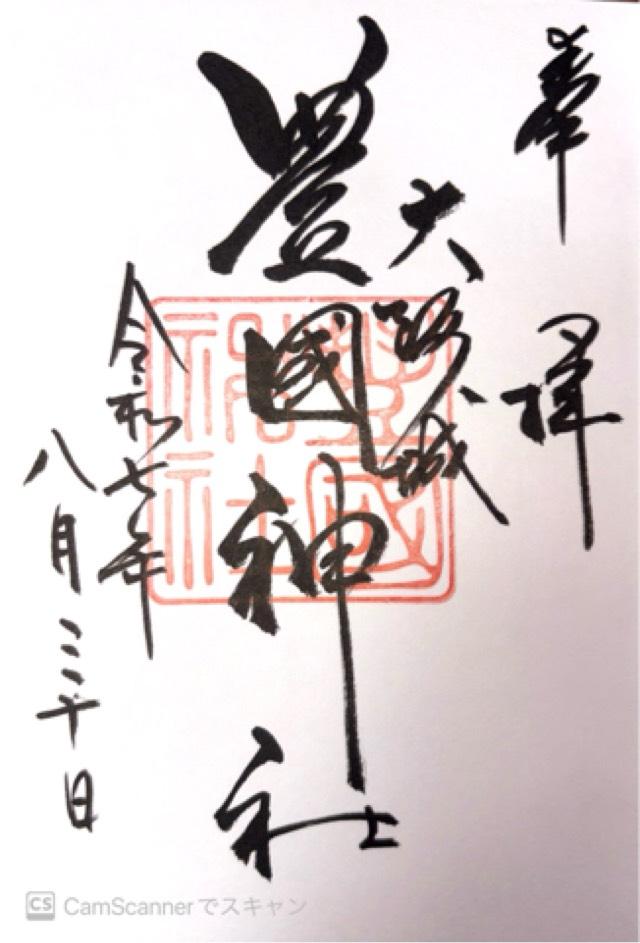 奉拝
大阪城
豊國神社
豊國神社
令和七年
八月三十日
CS CamScannerでスキャン